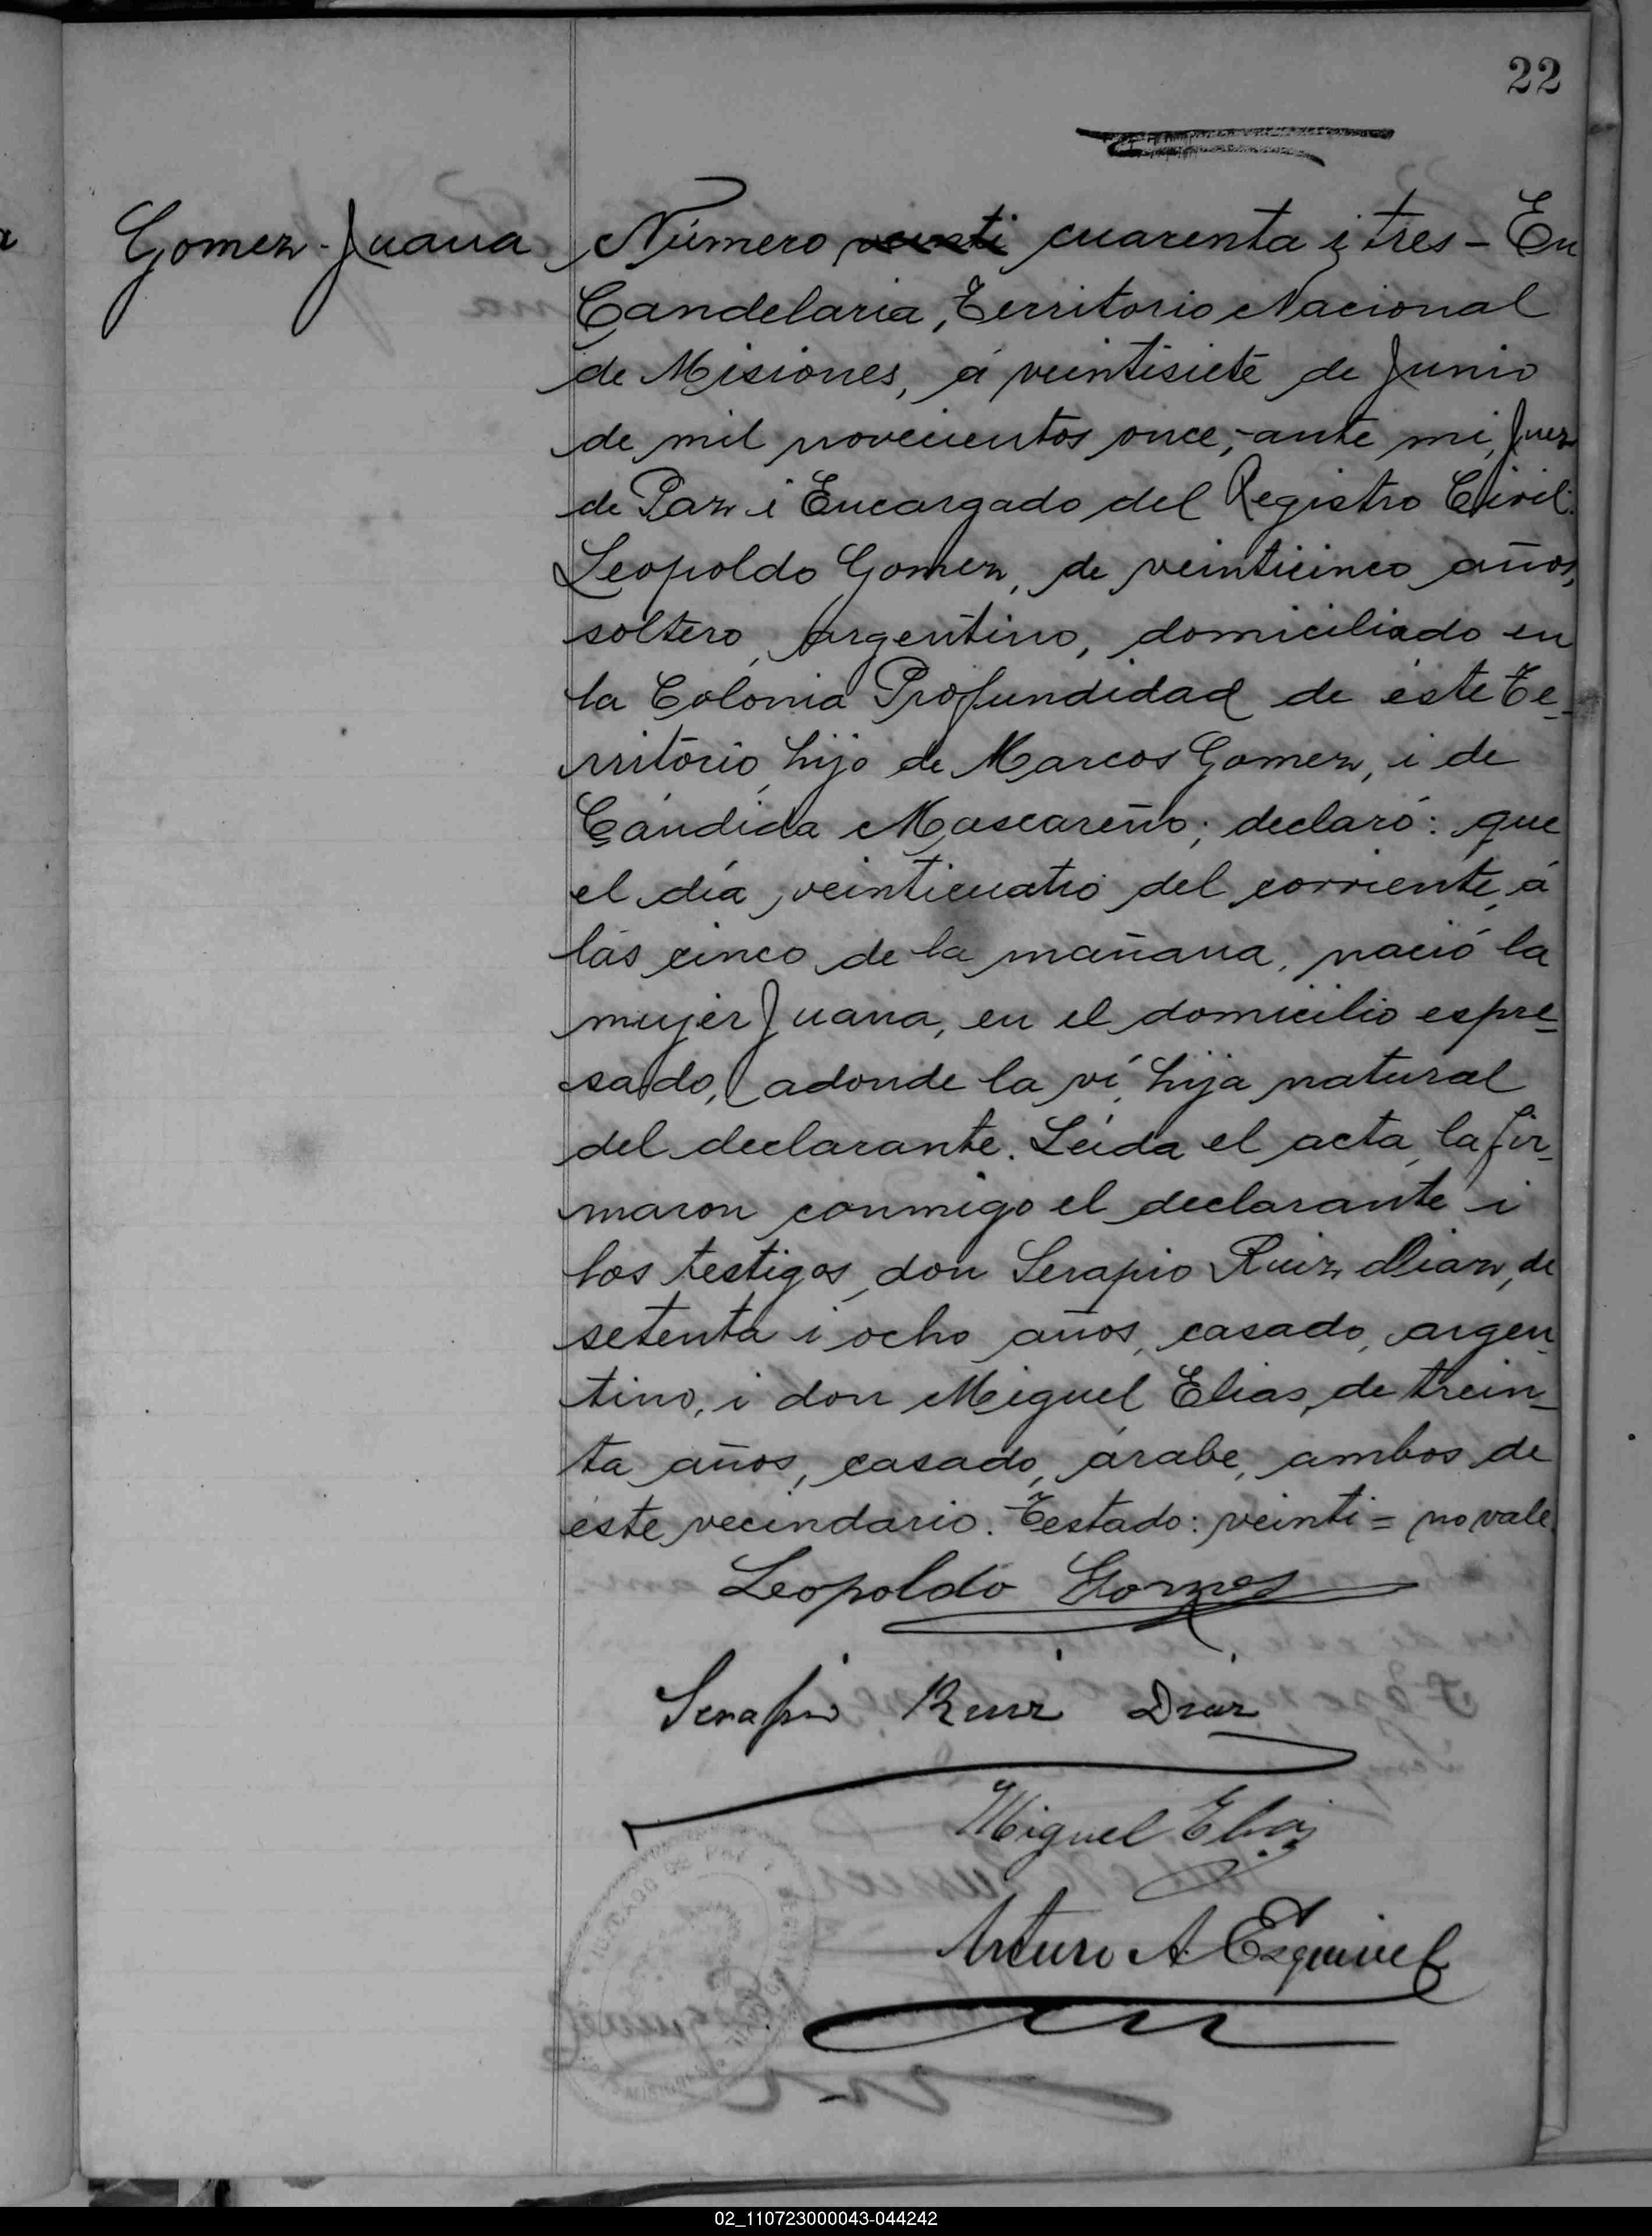 22
Gomez - Juana
Número veinti cuarenta i tres - En
Candelaria, Territorio Nacional
de Misiones, á veintisiete de Junio
de mil novecientos once, - ante mi, Juez
de Paz i Encargado del Registro Civil:
Leopoldo Gomez, de veinticinco años,
soltero, argentino, domiciliado en
la Colonia Profundidad de éste Te-
rritorio, hijo de Marcos Gomez, i de
Cándida Mascareño; declaró: que
el día veinticuatro del corriente, á
las cinco de la mañana, nació la
mujer Juana, en el domicilio espre-
sado, adonde la ví, hija natural
del declarante. Leida el acta, la fir-
maron conmigo el declarante i
los testigos, don Serapio Ruiz Diaz, de
setenta i ocho años, casado, argen-
tino, i don Miguel Elias, de trein-
ta años, casado, árabe, ambos de
éste vecindario. Testado: veinti = no vale
Leopoldo Gomes
Serapio Ruiz Diaz
Miguel Elias
Arturo A. Esquivel
02_110723000043-044242